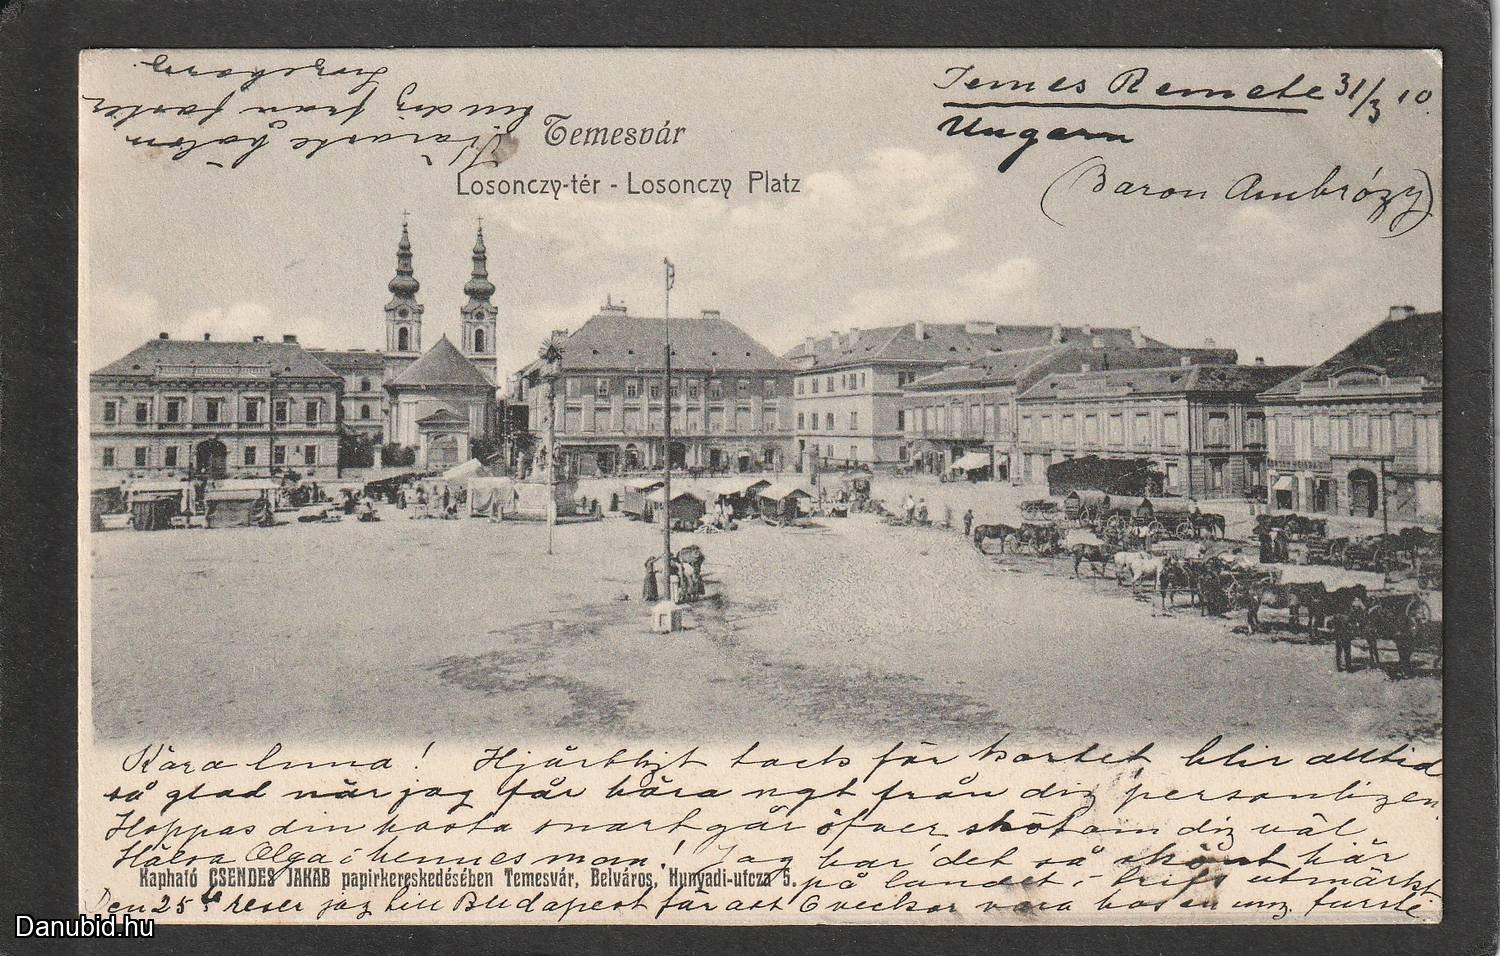 Temes Remete 31/3 10.
Ungarn
(Baron Ambrózy)
Temesvár
Losonczy-tér - Losonczy Platz
Kära Anna! Hjärtligt tack för kortet blir alltid
så glad när jag får höra ngt från dig personligen.
Hoppas din hosta snart går öfver sköt om dig väl.
Hälsa Olga o hennes man! Jag har det så skönt här
på landet, trifs utmärkt
Kapható CSENDES JAKAB papirkereskedésében Temesvár, Belváros, Hunyadi-utcza 5.
Den 25 reser jag till Budapest för att 6 veckor vara hos en ung furste
hälsn
från
Danubid.hu